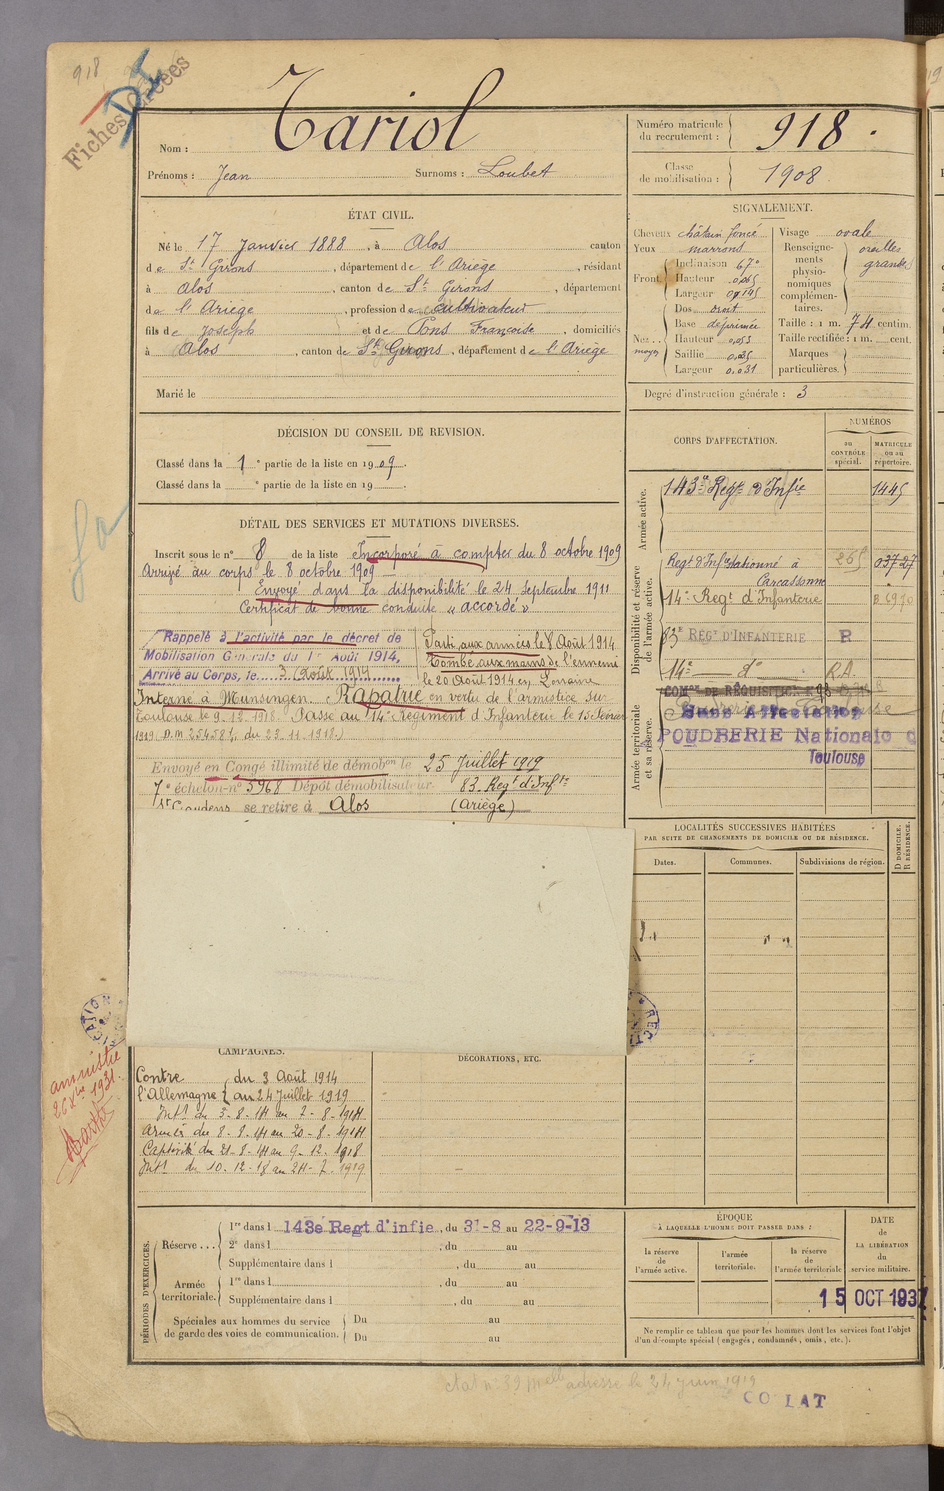 918
Fiches créées
DI
Nom : Cariol
Prénoms : Jean Surnoms : Loubet
Numéro matricule du recrutement : 918
Classe de mobilisation : 1908
ÉTAT CIVIL.
Né le 17 Janvier 1888, à Alos canton
de St Girons, département de l'Ariège, résidant
à Alos, canton de St Girons, département
de l'Ariège, profession de cultivateur
fils de Joseph et de Pons Françoise, domiciliés
à Alos, canton de St Girons, département de l'Ariège
Marié le
SIGNALEMENT.
Cheveux châtain foncé
Yeux marrons
Front Inclinaison 67°
Hauteur 0,065
Largeur 0,145
Nez.. moyen
Dos droit
Base déprimée
Hauteur 0,053
Saillie 0,025
Largeur 0,031
Visage ovale
Renseignements physionomiques complémentaires. oreilles grandes
Taille : 1 m. 74 centim.
Taille rectifiée : 1 m. cent.
Marques particulières.
Degré d'instruction générale : 3
DÉCISION DU CONSEIL DE REVISION.
Classé dans la 1e partie de la liste en 1909.
Classé dans la e partie de la liste en 19
CORPS D'AFFECTATION.
NUMÉROS
au CONTRÔLE spécial.
MATRICULE ou au répertoire.
Armée active.
143e Regt d'Infie 1445
Disponibilité et réserve de l'armée active.
Regt d'Infie stationné à Carcassonne 265 03727
14e Regt d'Infanterie
83E REGT D'INFANTERIE R
14e do R.A.
Armée territoriale et sa réserve.
COMON DE RÉQUISITION
Sans Affectation
POUDRERIE Nationale
Toulouse
DÉTAIL DES SERVICES ET MUTATIONS DIVERSES.
Inscrit sous le n° 8 de la liste Incorporé à compter du 8 octobre 1909
Arrivé au corps le 8 octobre 1909
Envoyé dans la disponibilité le 24 septembre 1911
Certificat de bonne conduite « accordé »
Rappelé à l'activité par le décret de
Mobilisation Générale du 1er Août 1914,
Arrivé au Corps, le 3 Août 1914
Parti aux armées le 8 Août 1914
Tombé aux mains de l'ennemi
le 20 Août 1914 en Lorraine
Interné à Munsingen. Rapatrié en vertu de l'armistice sur
Toulouse le 9.12.1918. Passé au 14e Régiment d'Infanterie le 15 Février
1919 (D.M. 25458 1/1 du 23.11.1918.)
Envoyé en Congé illimité de démobon le 25 Juillet 1919
7e échelon-n° 5968 Dépôt démobilisateur 83e Regt d'Infie
St Gaudens se retire à Alos (Ariège)
LOCALITÉS SUCCESSIVES HABITÉES
PAR SUITE DE CHANGEMENTS DE DOMICILE OU DE RÉSIDENCE.
Dates. Communes. Subdivisions de région. D DOMICILE. R RÉSIDENCE.
amnistie
26 Xbre 1931
CAMPAGNES.
Contre l'Allemagne du 3 Août 1914
au 24 Juillet 1919
Intr du 3-8-14 au 7-8-1914
Armées du 8-8-14 au 20-8-1914
Captivité du 21-8-14 au 9-12-1918
Intr du 10-12-18 au 24-7-1919
DÉCORATIONS, ETC.
PÉRIODES D'EXERCICES.
Réserve...
1re dans l 143e Regt d'infie, du 31-8 au 22-9-13
2e dans l , du au
Supplémentaire dans l , du au
Armée territoriale.
1re dans l , du au
Supplémentaire dans l , du au
Spéciales aux hommes du service de garde des voies de communication.
Du au
Du au
ÉPOQUE
À LAQUELLE L'HOMME DOIT PASSER DANS :
la réserve de l'armée active.
l'armée territoriale.
la réserve de l'armée territoriale
DATE de LA LIBÉRATION du service militaire.
15 OCT 1937
Ne remplir ce tableau que pour les hommes dont les services font l'objet
d'un décompte spécial (engagés, condamnés, omis, etc.).
adressé le 24 Juin 1919